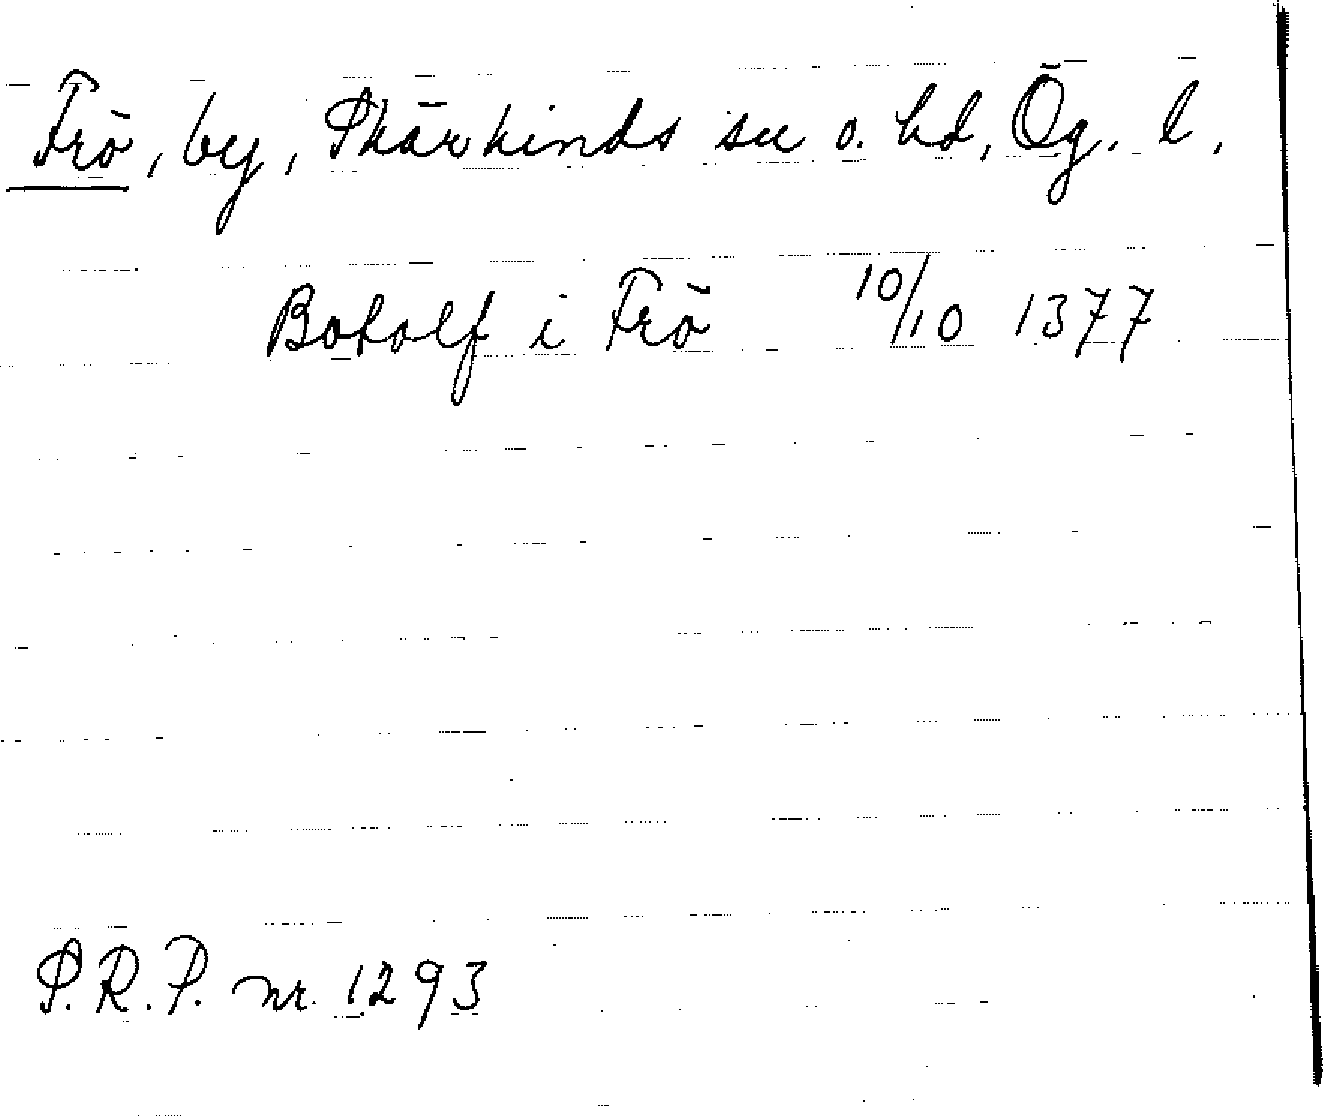 Frö, by, Skärkinds sn o. hd, Ög. l.
Botolf i Frö 10/10 1377
S.R.P. nr. 1293